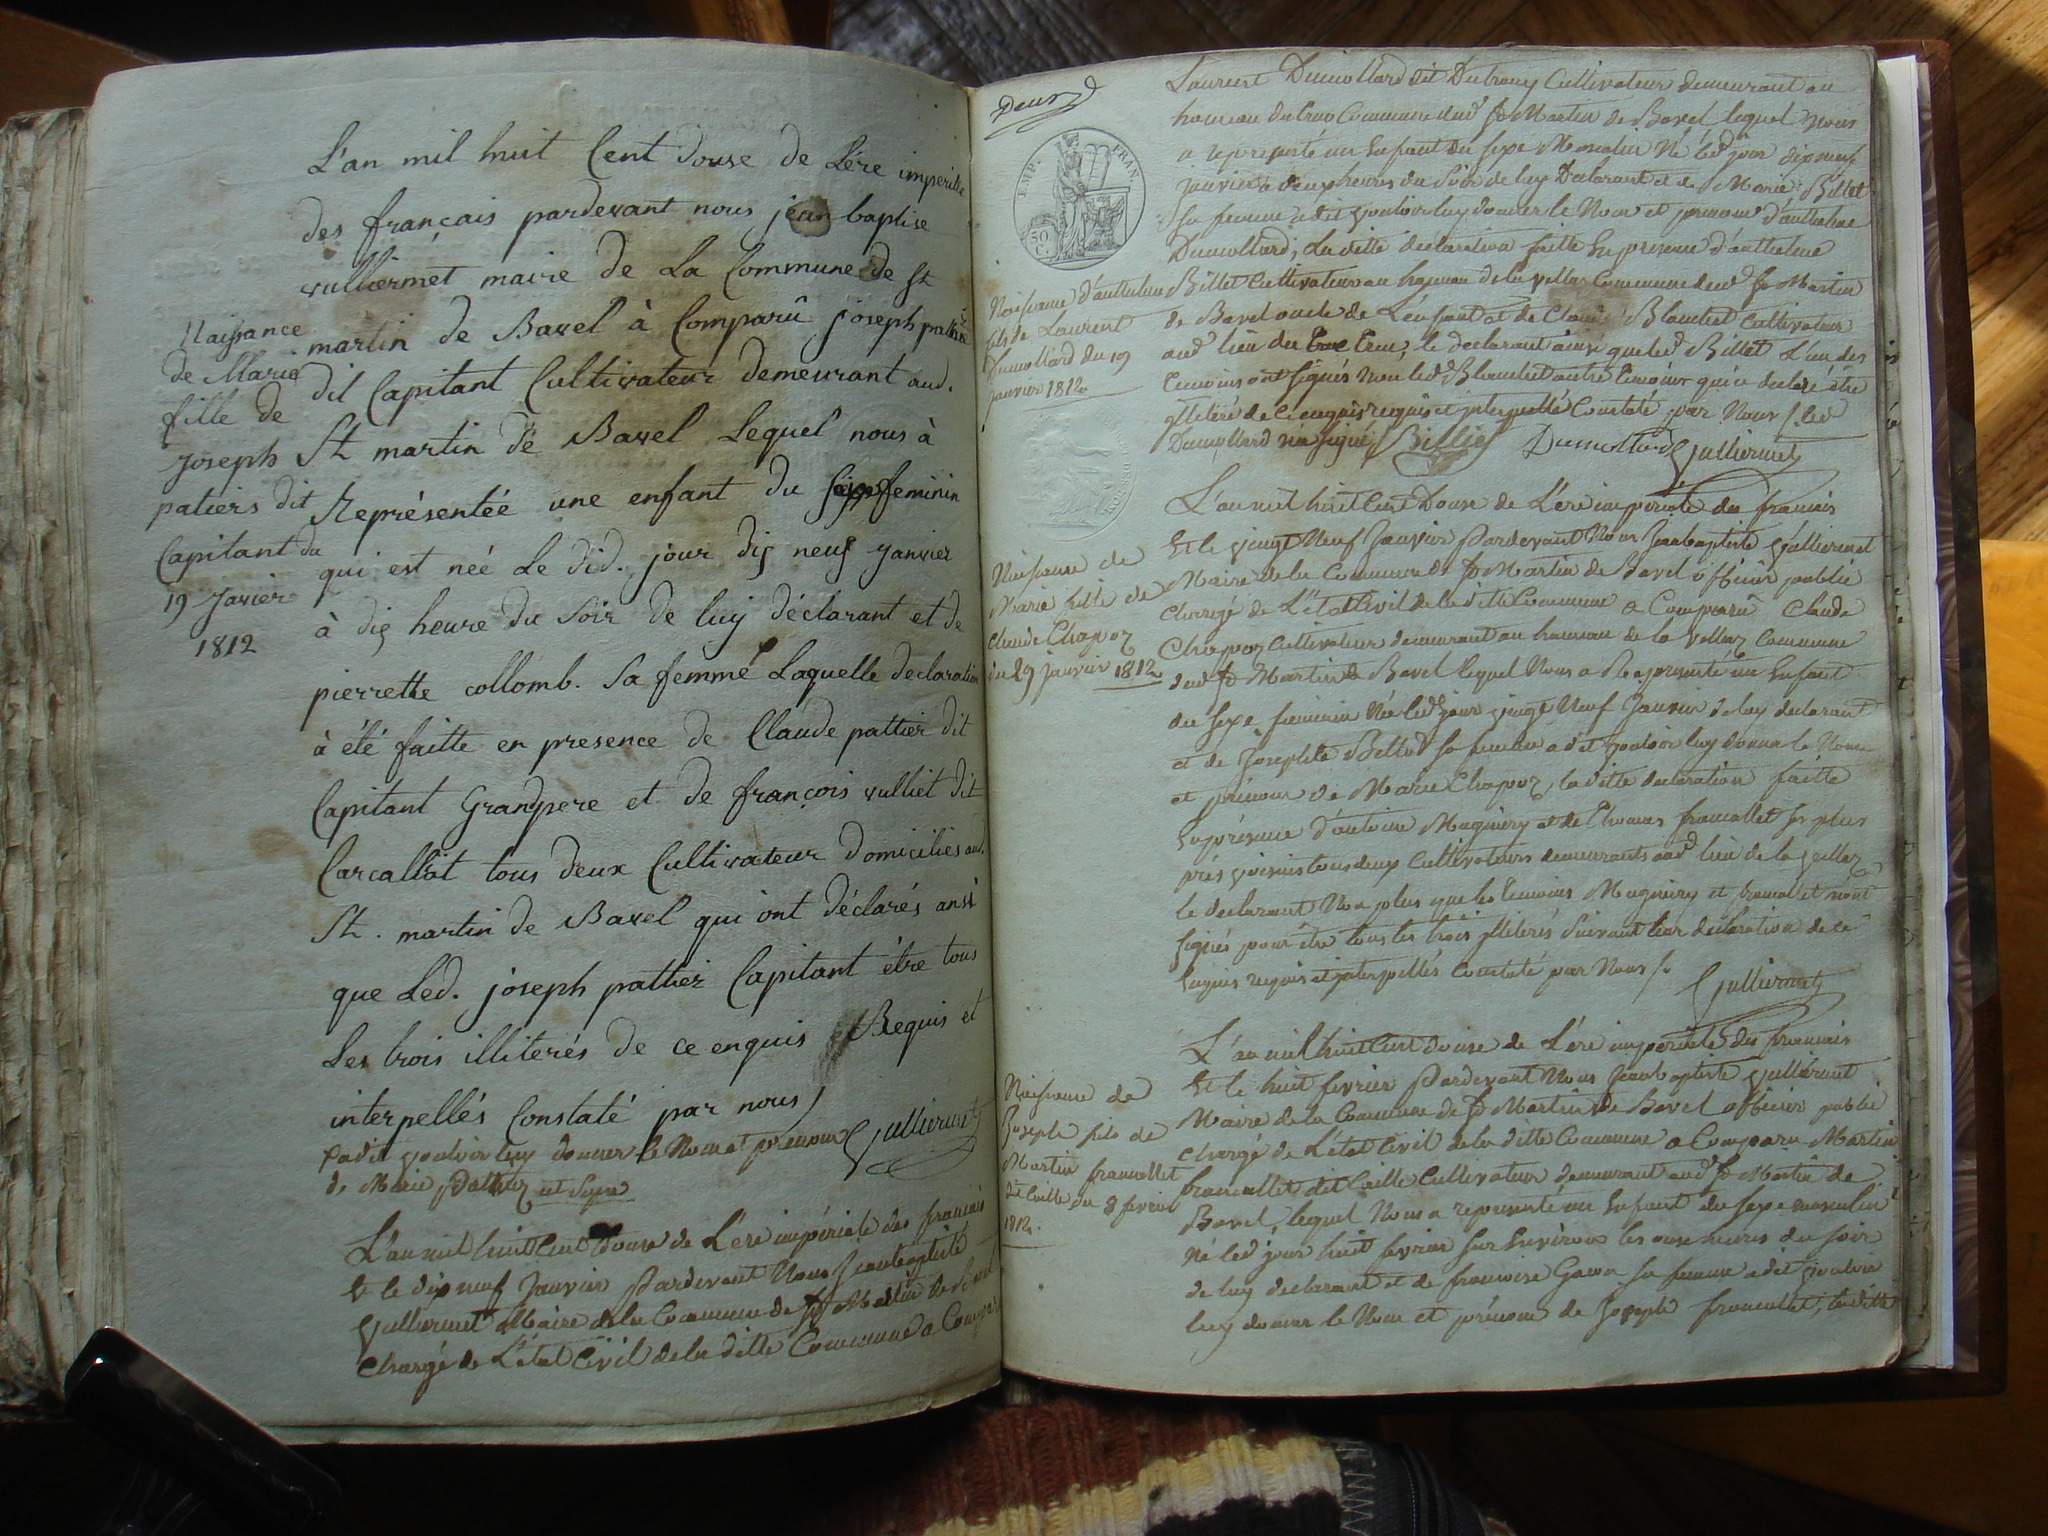 L'an mil huit Cent douse de L'ére imperialle
des français pardevant nous jean baptise
vulliermet maire de La Commune de St
martin de Bavel à Comparû joseph
dit Capitant Cultivateur demeurant aud.
St martin de Bavel Lequel nous à
Représentéé une enfant du sexe feminin
qui est née Le did. jour dis neuf janvier
à dis heure du soir de luy déclarant et de
pierrette collomb. Sa femme Laquelle declaration
à été faitte en presence de Claude pattier dit
Capitant Grandpere et de françois vulliet dit
Carcallat tous deux Cultivateur domiciliés aud.
St. martin de Bavel qui ont déclarés ansi
que Led. joseph pattier Capitant être tous
Les trois illiterés de ce enquis Requis et
interpellés Constaté par nous
a dit vouloir luy donner le Nom et prenom
de Marie
Vulliermet
Naissance
de Marie
fille de
Joseph
patiers dit
Capitant du
19 Janvier
1812
L'an mil huit Cent douse de L'ére impériale des francais
Et le dix neuf Janvier Pardevant Nous Jeanbaptiste
Vulliermet Maire de la Commune de St Martin de Bavel
Chargé de L'état Civil de la ditte Commune a Comparu
Deux
EMP. FRAN.
50
C.
Laurent Dumollard dit Cultivateur demeurant au
hameau Commune dud St Martin de Bavel lequel Nous
a représenté un Enfant du sexe Masculin Né led jour dix neuf
janvier a deux heures du Soir de luy Declarant et de Marie Billet
Sa femme a dit vouloir luy donner le Nom et prenom d'anthelme
Dumollard, La ditte declaration faitte En presence d'anthelme
Billet Cultivateur au hameau de la Commune dud St Martin
de Bavel oncle de L'enfant et de Claude Cultivateur
aud lieu du le declarant ainsi que led Billet L'un des
temoins ont signés Non led autre temoin qui a declaré être
illiteré de ce enquis requis et interpellé Constaté par Nous
Dumollard
Dumollard Vulliermet
Naissance d'anthelme
fils de Laurent
Dumollard du 19
janvier 1812
L'an mil huit Cent Douse de L'ére impériale des francais
Et le vingt Neuf Janvier Pardevant Nous Jeanbaptiste Vulliermet
Maire de la Commune de St Martin de Bavel officier public
Chargé de L'état Civil de la ditte Commune a Comparu Claude
Chapoz Cultivateur demeurant au hameau de la Commune
dud St Martin de Bavel lequel Nous a Représenté un Enfant
du Sexe feminin Né led jour vingt Neuf Janvier de luy declarant
et de Josephte sa femme a dit vouloir luy donner le Nom
et prénom de Marie Chapoz, la ditte declaration faitte
En présence d'antoine Magniery et de Thomas francallet Ses plus
prés voisins tous deux Cultivateurs demeurants aud lieu de la
le declarant Non plus que les temoins Magniery et francallet n'ont
signés pour être tous les trois illiterés Suivant leur declaration de ce
Enquis requis et interpellés Constaté par Nous
Vulliermet
Naissance de
Marie fille de
Claude Chapoz
du 29 janvier 1812
L'an mil huit Cent douse de L'ére impériale des francais
Et le huit fevrier Pardevant Nous Jeanbaptiste Vulliermet
Maire de la Commune de St Martin de Bavel officier public
Chargé de L'état Civil de la ditte Commune a Comparu Martin
francallet dit Caille Cultivateur demeurant aud St Martin de
Bavel, lequel Nous a représenté un Enfant du Sexe masculin
Né led jour huit fevrier sur Environ les onse heures du soir
de luy declarant et de francoise sa femme a dit vouloir
luy donner le Nom et prénom de Joseph francallet, la ditte
Naissance de
Joseph fils de
Martin francallet
dit Caille du 8 fevrier
1812.